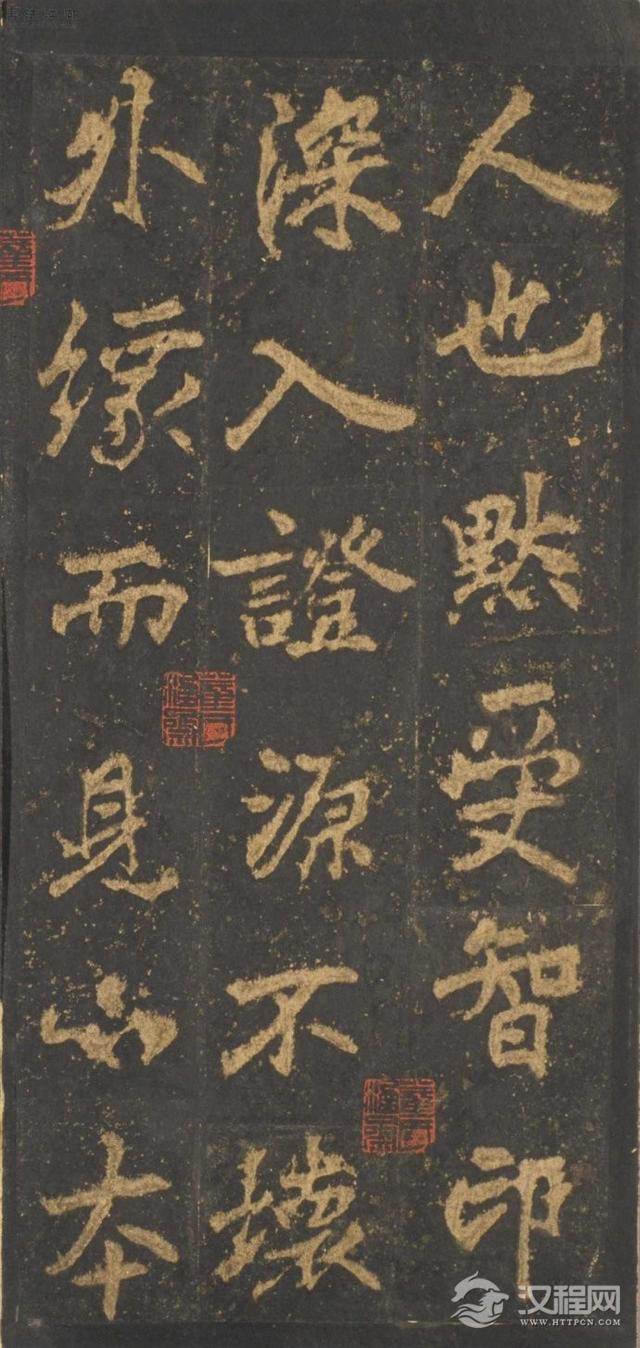 人也默受智印
深入證源不壞
外緣而見心本
汉程网
WWW.HTTPCN.COM